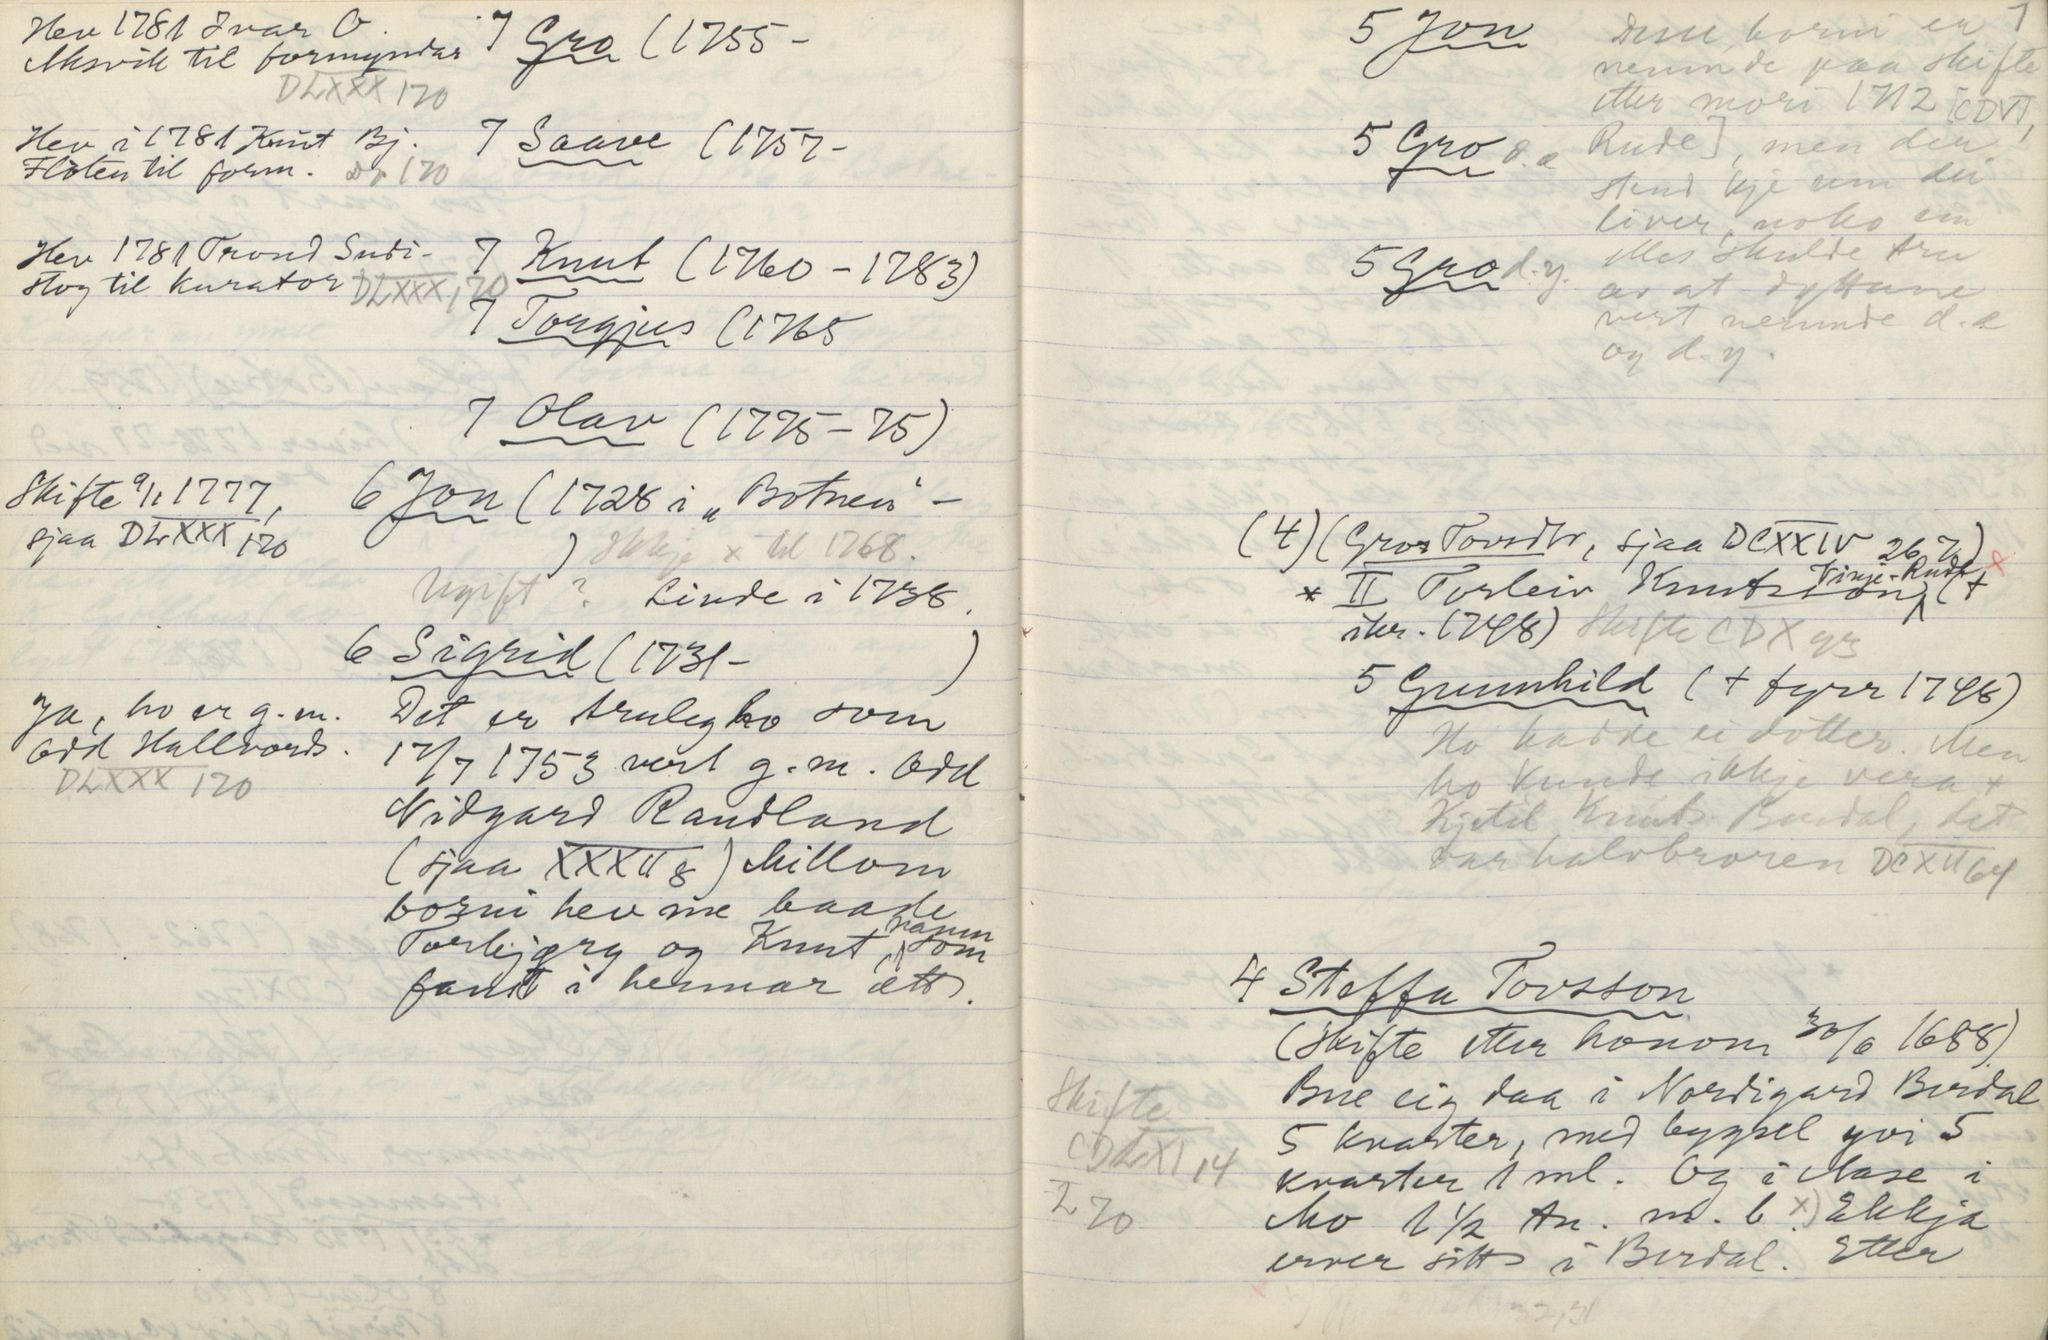 Hev 1781 Ivar O.
Aksvik til formyndar
DLXXX 120
7 Gro (1755 -
Hev i 1781 Knut Bj.
Flòten til form. Do 120
7 Saave (1757 -
Hev 1781 Trond Sudi-
stog til kurator DLXXX, 120
7 Knut (1760 - 1783)
7 Torgjus (1765
7 Olav (1775 - 75)
Skifte 9/1 1777,
sjaa DLXXX 120
6 Jon (1728 i „Botnen“ -
) Ikkje x til 1768.
Ugift? Livde i 1738.
6 Sigrid (1731 - )
Ja, ho er g. m.
Odd Hallvords.
DLXXX 120
Det er truleg ho som
17/7 1753 vert g. m. Odd
Nidgard Raudland
(sjaa XXXII 8) Millom
borni hev me baade
Torbjørg og Knut, namn som
fanst i hennar ætt.
7
5 Jon
5 Gro d. e
5 Gro d. y.
Desse borni er
nemnde paa skifte
etter mori 1712 [CDVI,
Rude], men der
stend ikje um dei
liver, noko ein
elles skulde tru
av at dottrane
vert nemnde d. e
og d. y.
(4) (Gros Tovsdtr, sjaa DCXXIV 26, 7) x
x II Torleiv Knutsson Vinje-Rude (+
ikr. 1748) Skifte CDX 93
5 Gunnhild (+ fyrr 1748)
Ho hadde ei dotter. Men
ho kunde ikkje vera x
Kjetil Knuts. Burdal, det
var halvbroren DCXII 64
4 Steffa Tovsson
(Skifte etter honom 30/6 1688)
Skifte
CDLXI 14
I 70
Bue eig daa i Nordigard Burdal
5 kvarter, med bygsel yvi 5
kvarter 1 ml. Og i Aase i
Mo 1 1/2 tn. m. b. x) Ekkja
erver sitt i Burdal. Etter